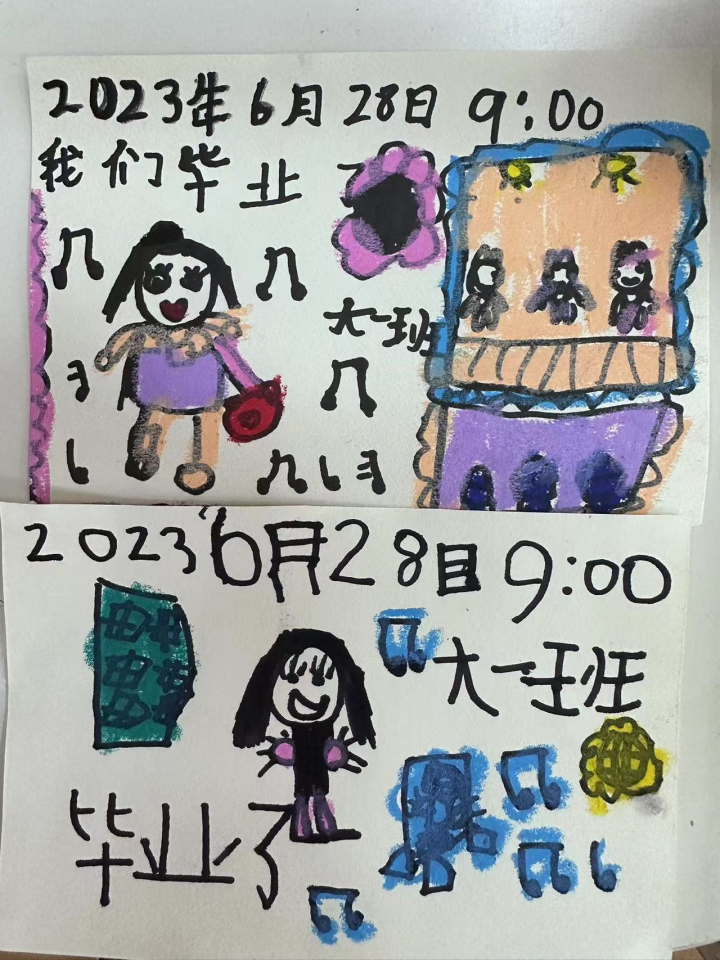 2023年6月28日 9:00
我们毕业
大一班
2023年6月28日 9:00
大一班
毕业了